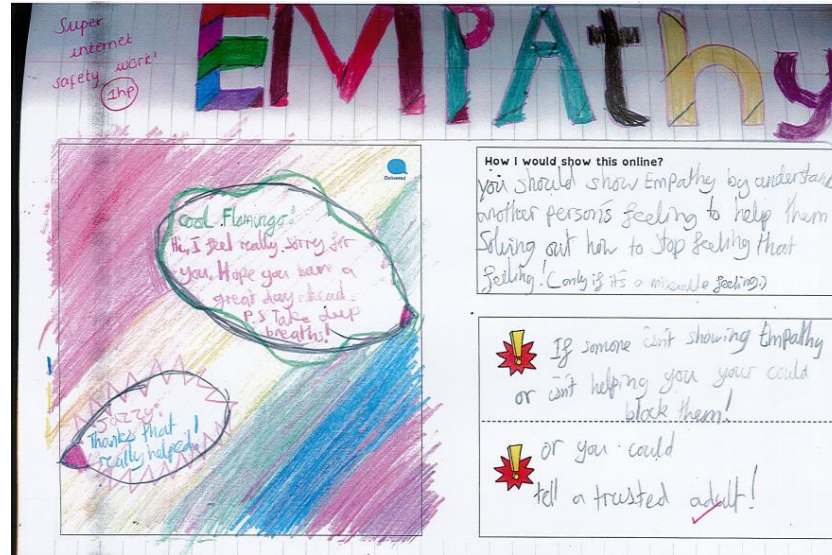 Super
internet
safety work!
1hp
EMPAthy
Delivered
Cool Flamingo:
Hi, I feel really sorry for
you. Hope you have a
great day ahead.
P.S Take deep
breaths!
Jazzy:
Thanks that
really helped!
How I would show this online?
you should show Empathy by understand
another person's feeling to help them
Solving out how to stop feeling that
feeling! (only if it's a miserable feeling.)
If somone isn't showing Empathy
or isn't helping you your could
block them!
or you could
tell a trusted adult!